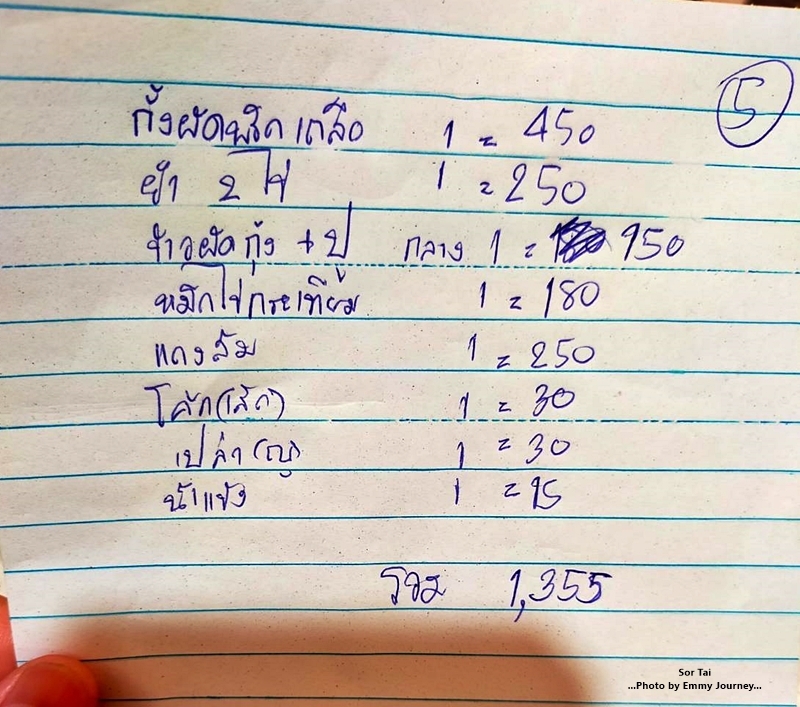 5
กั้งผัดพริกเกลือ 1 = 450
ยำ 2 ไข่ 1 = 250
ข้าวผัดกุ้ง + ปู กลาง 1 = 150
หมึกไข่กระเทียม 1 = 180
แกงส้ม 1 = 250
โค้ก(เล็ก) 1 = 30
เปล่า(ญ) 1 = 30
น้ำแข็ง 1 = 15
รวม 1,355
Sor Tai
...Photo by Emmy Journey...